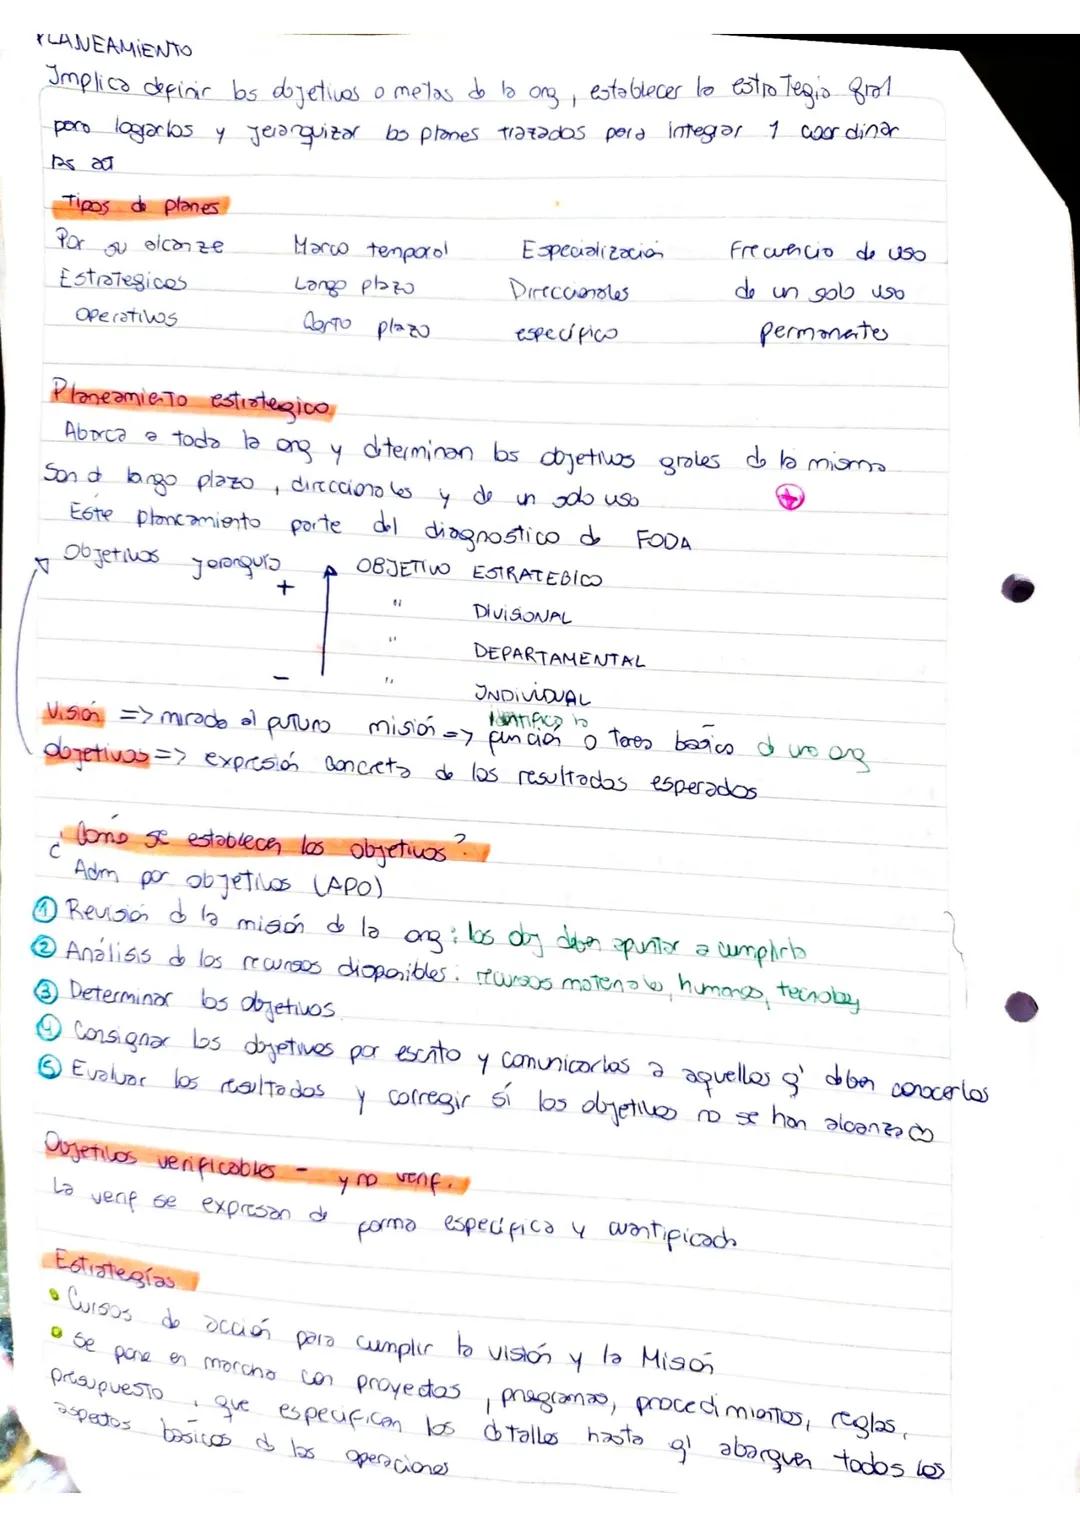 PLANEAMIENTO
Implica definir los objetivos o metas de la org, establecer la estrategia gral
para lograrlos y jerarquizar los planes trazados para integrar y coordinar
las act
Tipos de planes
Por su alcanze Marco temporal Especialización Frecuencia de uso
Estrategicos Largo plazo Direccionales de un solo uso
Operativos Corto plazo específico permanentes
Planeamiento estrategico
Abarca a toda la org y determinan los objetivos grales de la misma
Son d largo plazo, direccionales y de un solo uso
Este planeamiento parte del diagnostico de FODA
Objetivos jerarquía + OBJETIVO ESTRATEGICO
" DIVISIONAL
" DEPARTAMENTAL
- " INDIVIDUAL
Visión => mirada al futuro misión => identifica la función o tarea basica d una org
objetivos => expresión concreta de los resultados esperados
¿Como se establecen los objetivos?
Adm por objetivos (APO)
1 Revisión d la misión de la org: los obj deben apuntar a cumplirla
2 Análisis de los recursos disponibles: recursos materiales, humanos, tecnolog
3 Determinar los objetivos.
4 Consignar los objetivos por escrito y comunicarlos a aquellos q' deben conocerlos
5 Evaluar los resultados y corregir si los objetivos no se han alcanzado
Objetivos verificables - y no verif.
La verif se expresan de forma específica y cuantificada
Estrategías
• Cursos de acción para cumplir la visión y la Misión
• Se pone en marcha con proyectos, programas, procedimientos, reglas,
presupuesto, que especifican los detalles hasta q' abarquen todos los
aspectos basicos d las operaciones